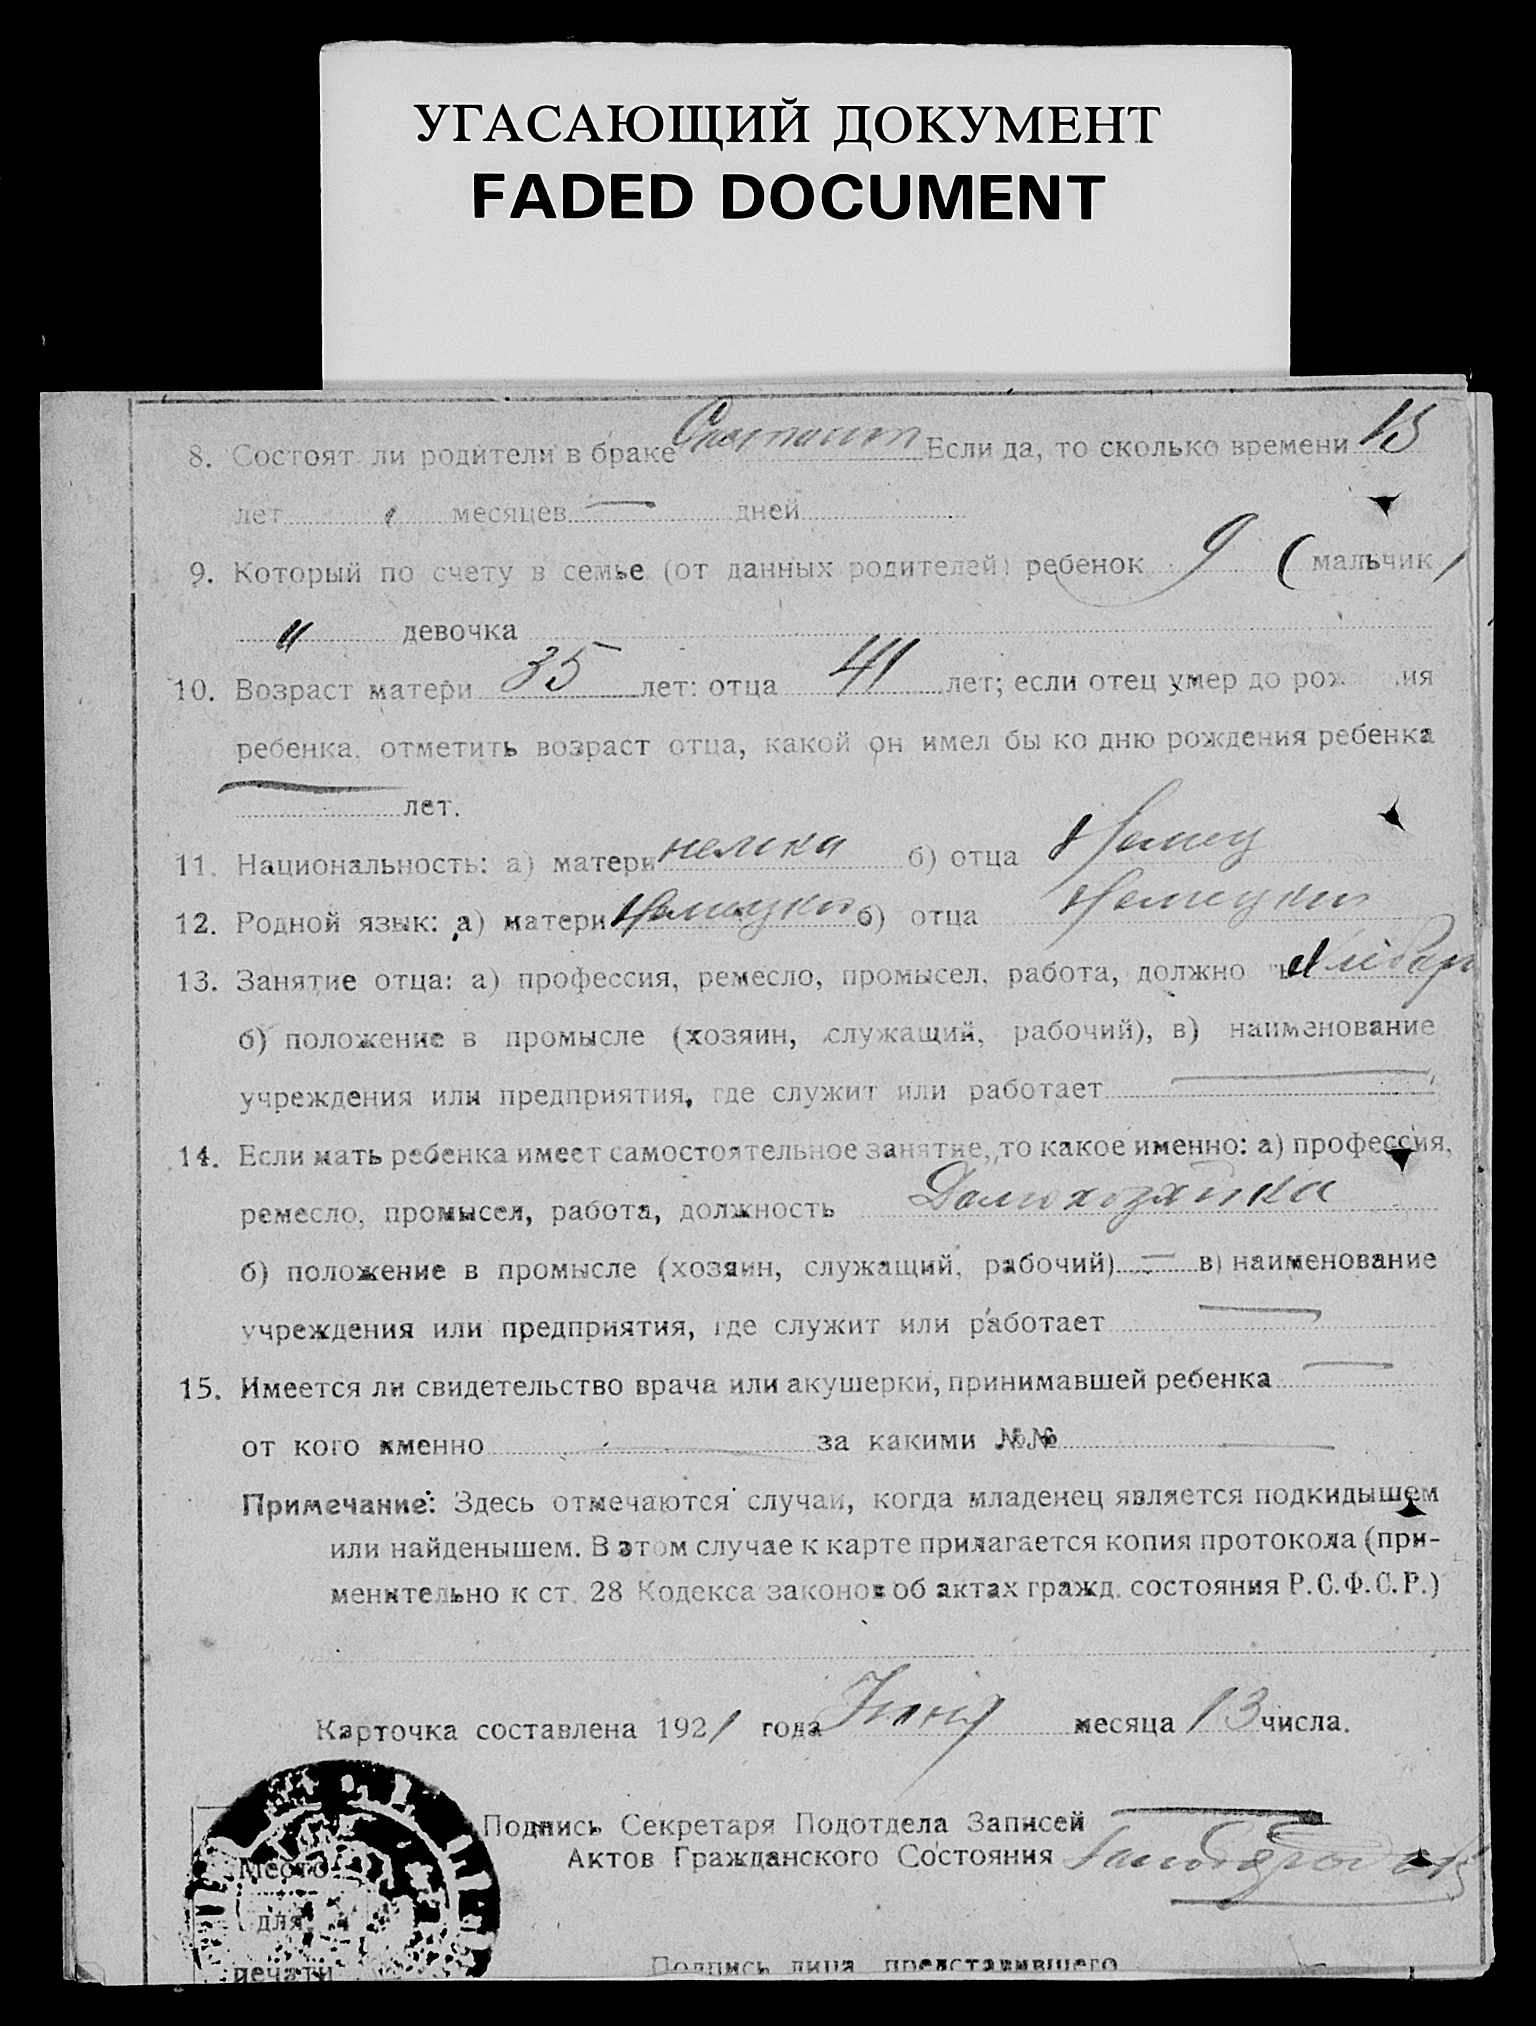 УГАСАЮЩИЙ ДОКУМЕНТ
FADED DOCUMENT
8. Состоят ли родители в браке Состоит Если да, то сколько времени 15
лет месяцев — дней
9. Который по счету в семье (от данных родителей) ребенок 9 (мальчик
" девочка
10. Возраст матери 35 лет: отца 41 лет; если отец умер до рождения
ребенка, отметить возраст отца, какой он имел бы ко дню рождения ребенка
— лет.
11. Национальность: а) матери немка б) отца Немец
12. Родной язык: а) матери Немецкий б) отца Немецкий
13. Занятие отца: а) профессия, ремесло, промысел, работа, должно
б) положение в промысле (хозяин, служащий, рабочий), в) наименование
учреждения или предприятия, где служит или работает —
14. Если мать ребенка имеет самостоятельное занятие, то какое именно: а) профессия,
ремесло, промысел, работа, должность Домохозяйка
б) положение в промысле (хозяин, служащий, рабочий) — в) наименование
учреждения или предприятия, где служит или работает —
15. Имеется ли свидетельство врача или акушерки, принимавшей ребенка —
от кого именно — за какими №№ —
Примечание: Здесь отмечаются случаи, когда младенец является подкидышем
или найденышем. В этом случае к карте прилагается копия протокола (при-
менительно к ст. 28 Кодекса законов об актах гражд. состояния Р.С.Ф.С.Р.)
Карточка составлена 1921 года Июня месяца 13 числа.
Подпись Секретаря Подотдела Записей
Актов Гражданского Состояния
Место
для
печати
Подпись лица, представившего